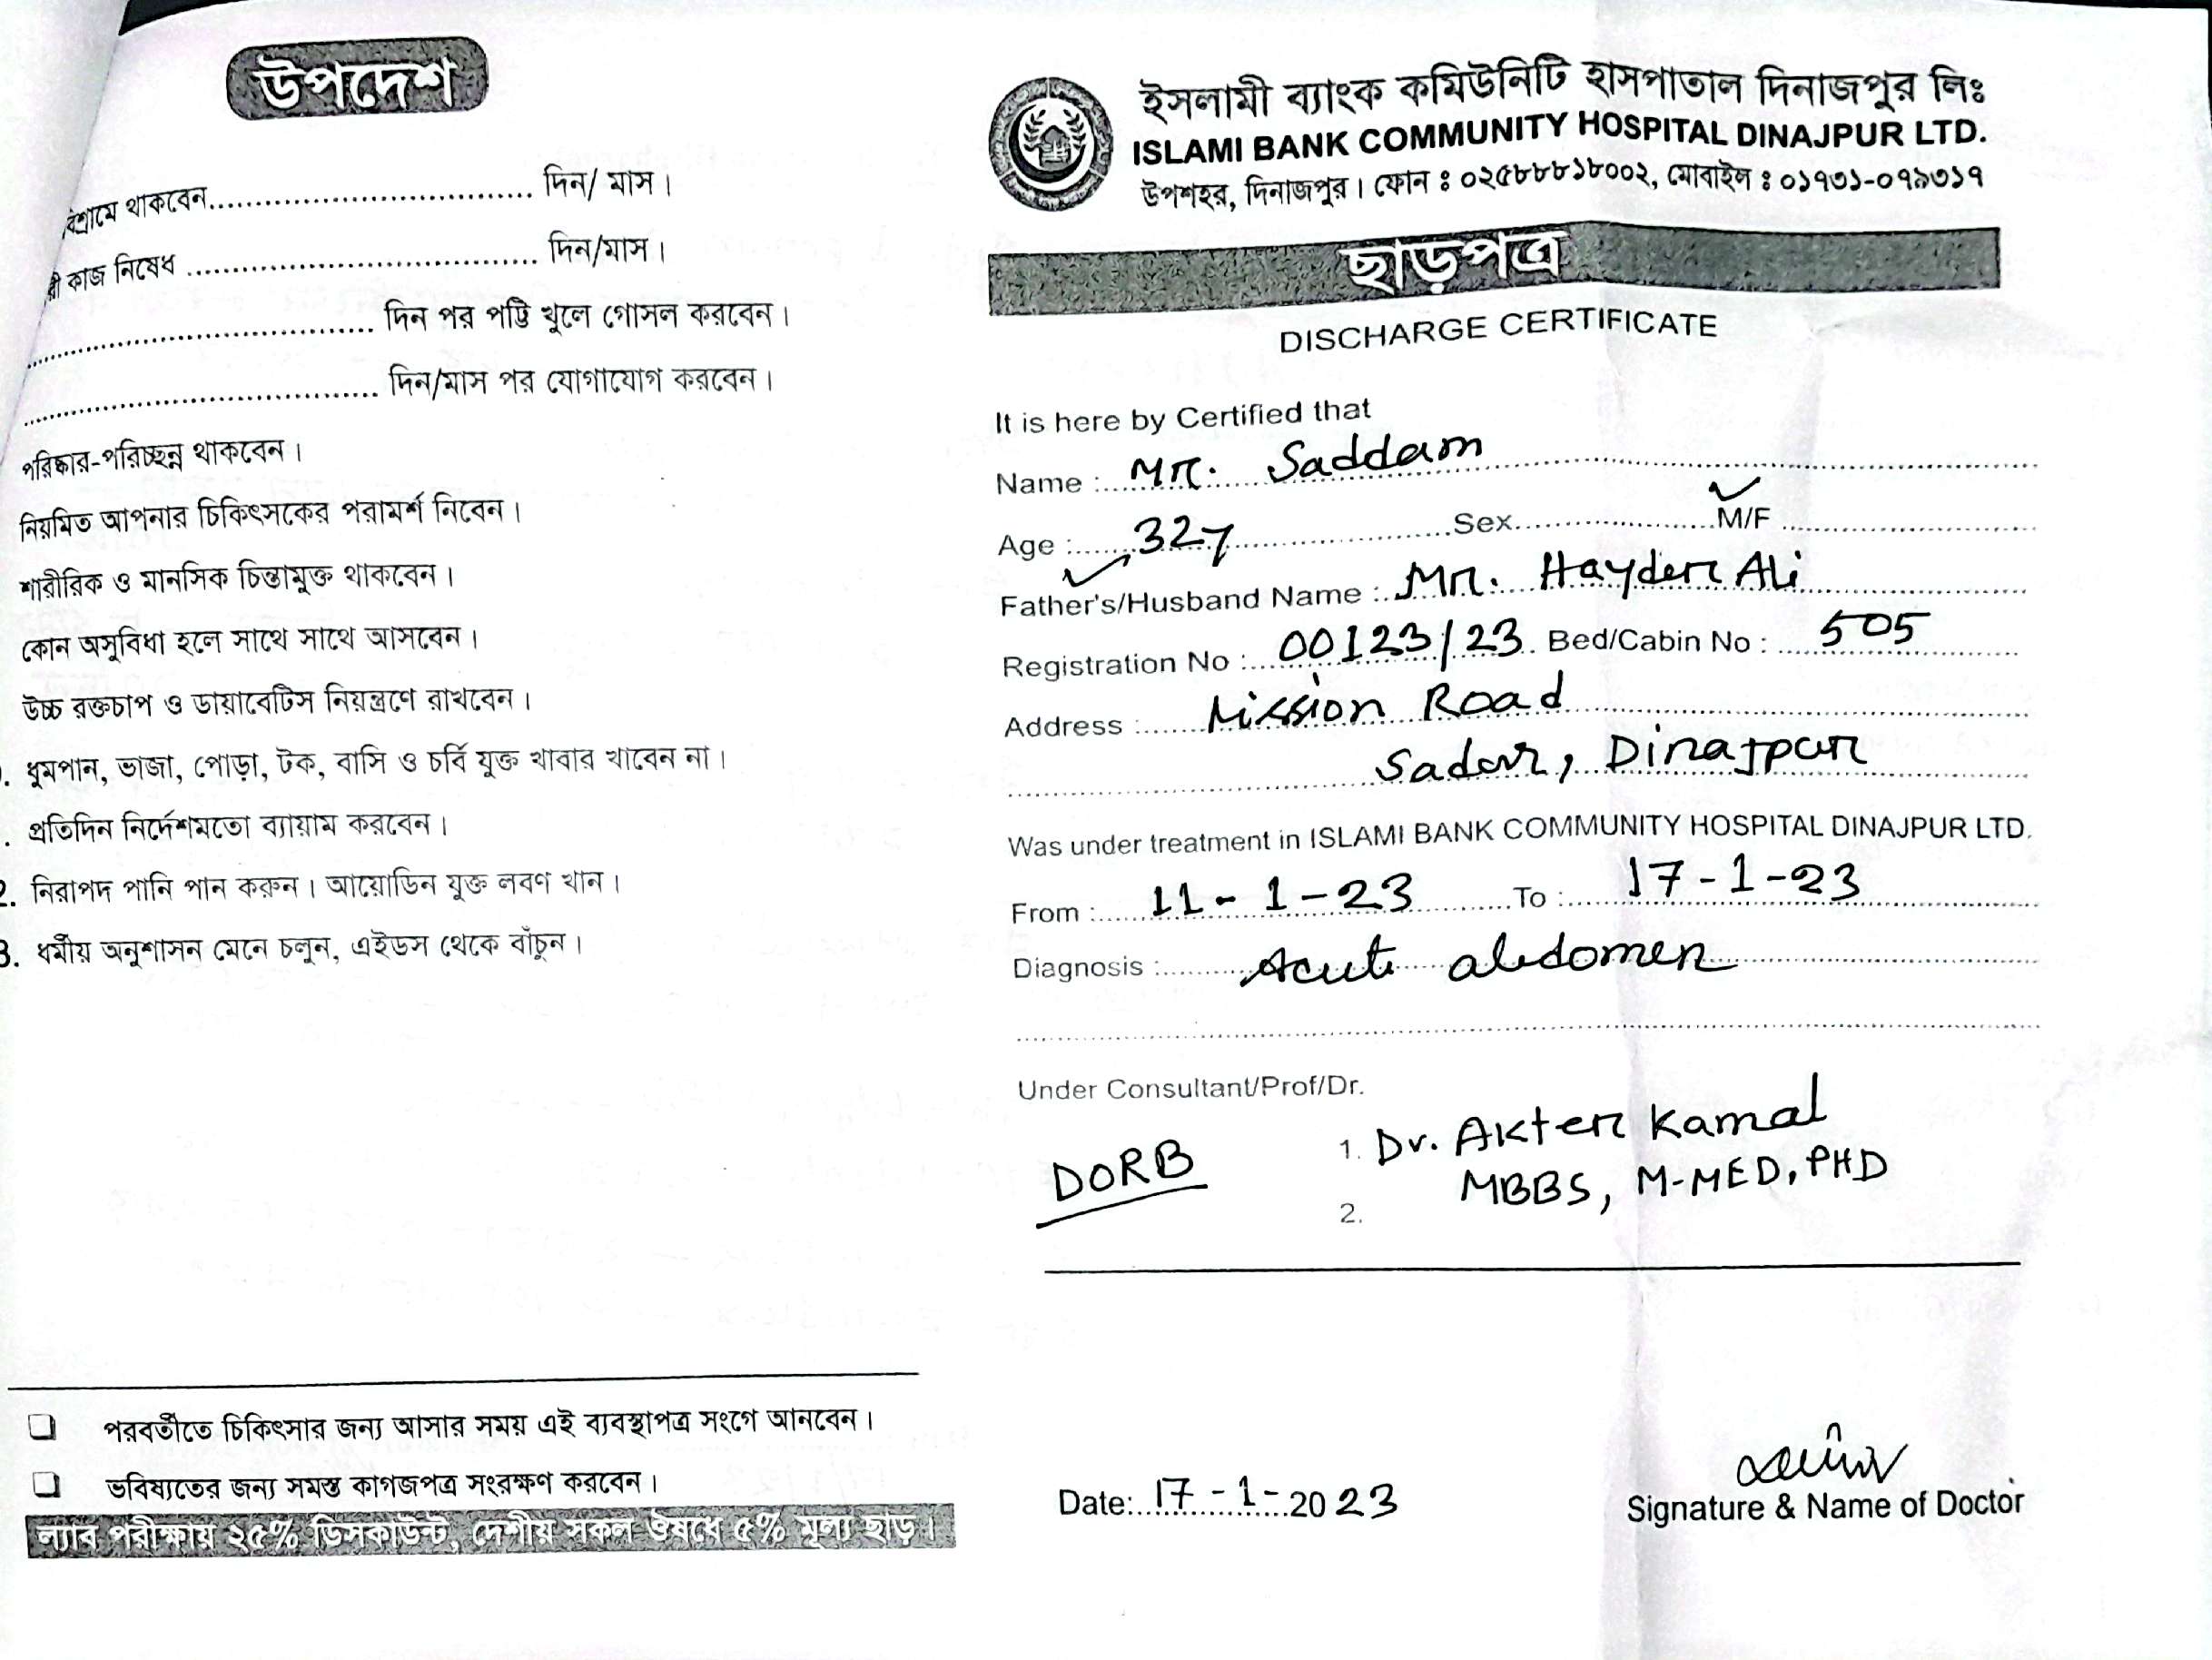 উপদেশ
বিশ্রামে থাকবেন.................................. দিন/ মাস।
কাজ নিষেধ ..................................... দিন/মাস।
..................................... দিন পর পট্টি খুলে গোসল করবেন।
..................................... দিন/মাস পর যোগাযোগ করবেন।
পরিষ্কার-পরিচ্ছন্ন থাকবেন।
নিয়মিত আপনার চিকিৎসকের পরামর্শ নিবেন।
শারীরিক ও মানসিক চিন্তামুক্ত থাকবেন।
কোন অসুবিধা হলে সাথে সাথে আসবেন।
উচ্চ রক্তচাপ ও ডায়াবেটিস নিয়ন্ত্রণে রাখবেন।
. ধুমপান, ভাজা, পোড়া, টক, বাসি ও চর্বি যুক্ত খাবার খাবেন না।
. প্রতিদিন নির্দেশমতো ব্যায়াম করবেন।
২. নিরাপদ পানি পান করুন। আয়োডিন যুক্ত লবণ খান।
৩. ধর্মীয় অনুশাসন মেনে চলুন, এইডস থেকে বাঁচুন।
❑ পরবর্তীতে চিকিৎসার জন্য আসার সময় এই ব্যবস্থাপত্র সংগে আনবেন।
❑ ভবিষ্যতের জন্য সমস্ত কাগজপত্র সংরক্ষণ করবেন।
ল্যাব পরীক্ষায় ২৫% ডিসকাউন্ট, দেশীয় সকল ঔষধে ৫% মূল্য ছাড়।
ইসলামী ব্যাংক কমিউনিটি হাসপাতাল দিনাজপুর লিঃ
ISLAMI BANK COMMUNITY HOSPITAL DINAJPUR LTD.
উপশহর, দিনাজপুর। ফোন ঃ ০২৫৮৮৮১৮০০২, মোবাইল ঃ ০১৭৩১-০৭৯৩১৭
ছাড়পত্র
DISCHARGE CERTIFICATE
It is here by Certified that
Name : Mr. Saddam
Age : 32y Sex M/F
Father's/Husband Name : Mr. Hayder Ali
Registration No : 00123/23 Bed/Cabin No : 505
Address : Mission Road
Sadar, Dinajpur
Was under treatment in ISLAMI BANK COMMUNITY HOSPITAL DINAJPUR LTD.
From : 11-1-23 To : 17-1-23
Diagnosis : Acute abdomen
Under Consultant/Prof/Dr.
DORB 1. Dr. Akter Kamal
2. MBBS, M-MED, PHD
Date: 17-1-2023
Signature & Name of Doctor